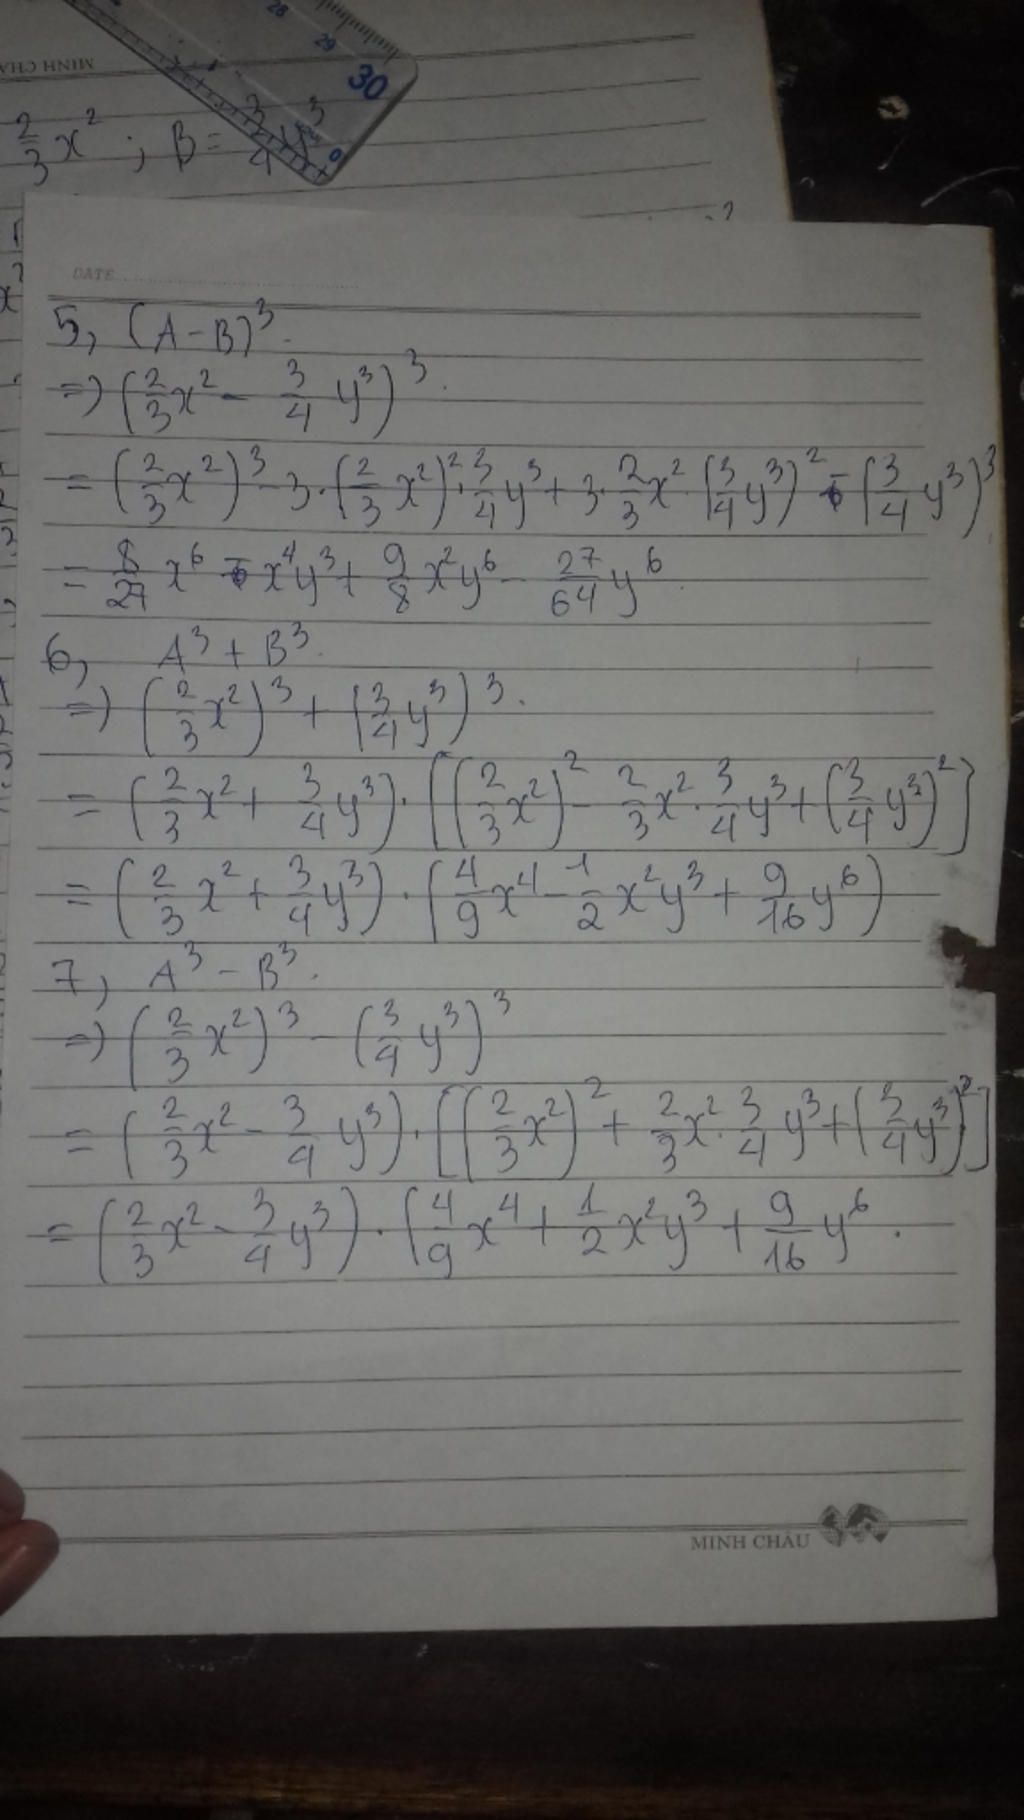 MINH CHÂ
28
29
30
0
2/3 x² ; B = 3/4 y³
DATE
5, (A - B)³.
=) (2/3 x² - 3/4 y³)³.
= (2/3 x²)³ - 3.(2/3 x²)².3/4 y³ + 3.2/3 x².(3/4 y³)² - (3/4 y³)³
= 8/27 x⁶ - x⁴y³ + 9/8 x²y⁶ - 27/64 y⁶
6, A³ + B³.
=) (2/3 x²)³ + (3/4 y³)³.
= (2/3 x² + 3/4 y³).[(2/3 x²)² - 2/3 x².3/4 y³ + (3/4 y³)²]
= (2/3 x² + 3/4 y³).(4/9 x⁴ - 1/2 x²y³ + 9/16 y⁶)
7, A³ - B³.
=) (2/3 x²)³ - (3/4 y³)³
= (2/3 x² - 3/4 y³).[(2/3 x²)² + 2/3 x².3/4 y³ + (3/4 y³)²]
= (2/3 x² - 3/4 y³).(4/9 x⁴ + 1/2 x²y³ + 9/16 y⁶.
MINH CHÂU